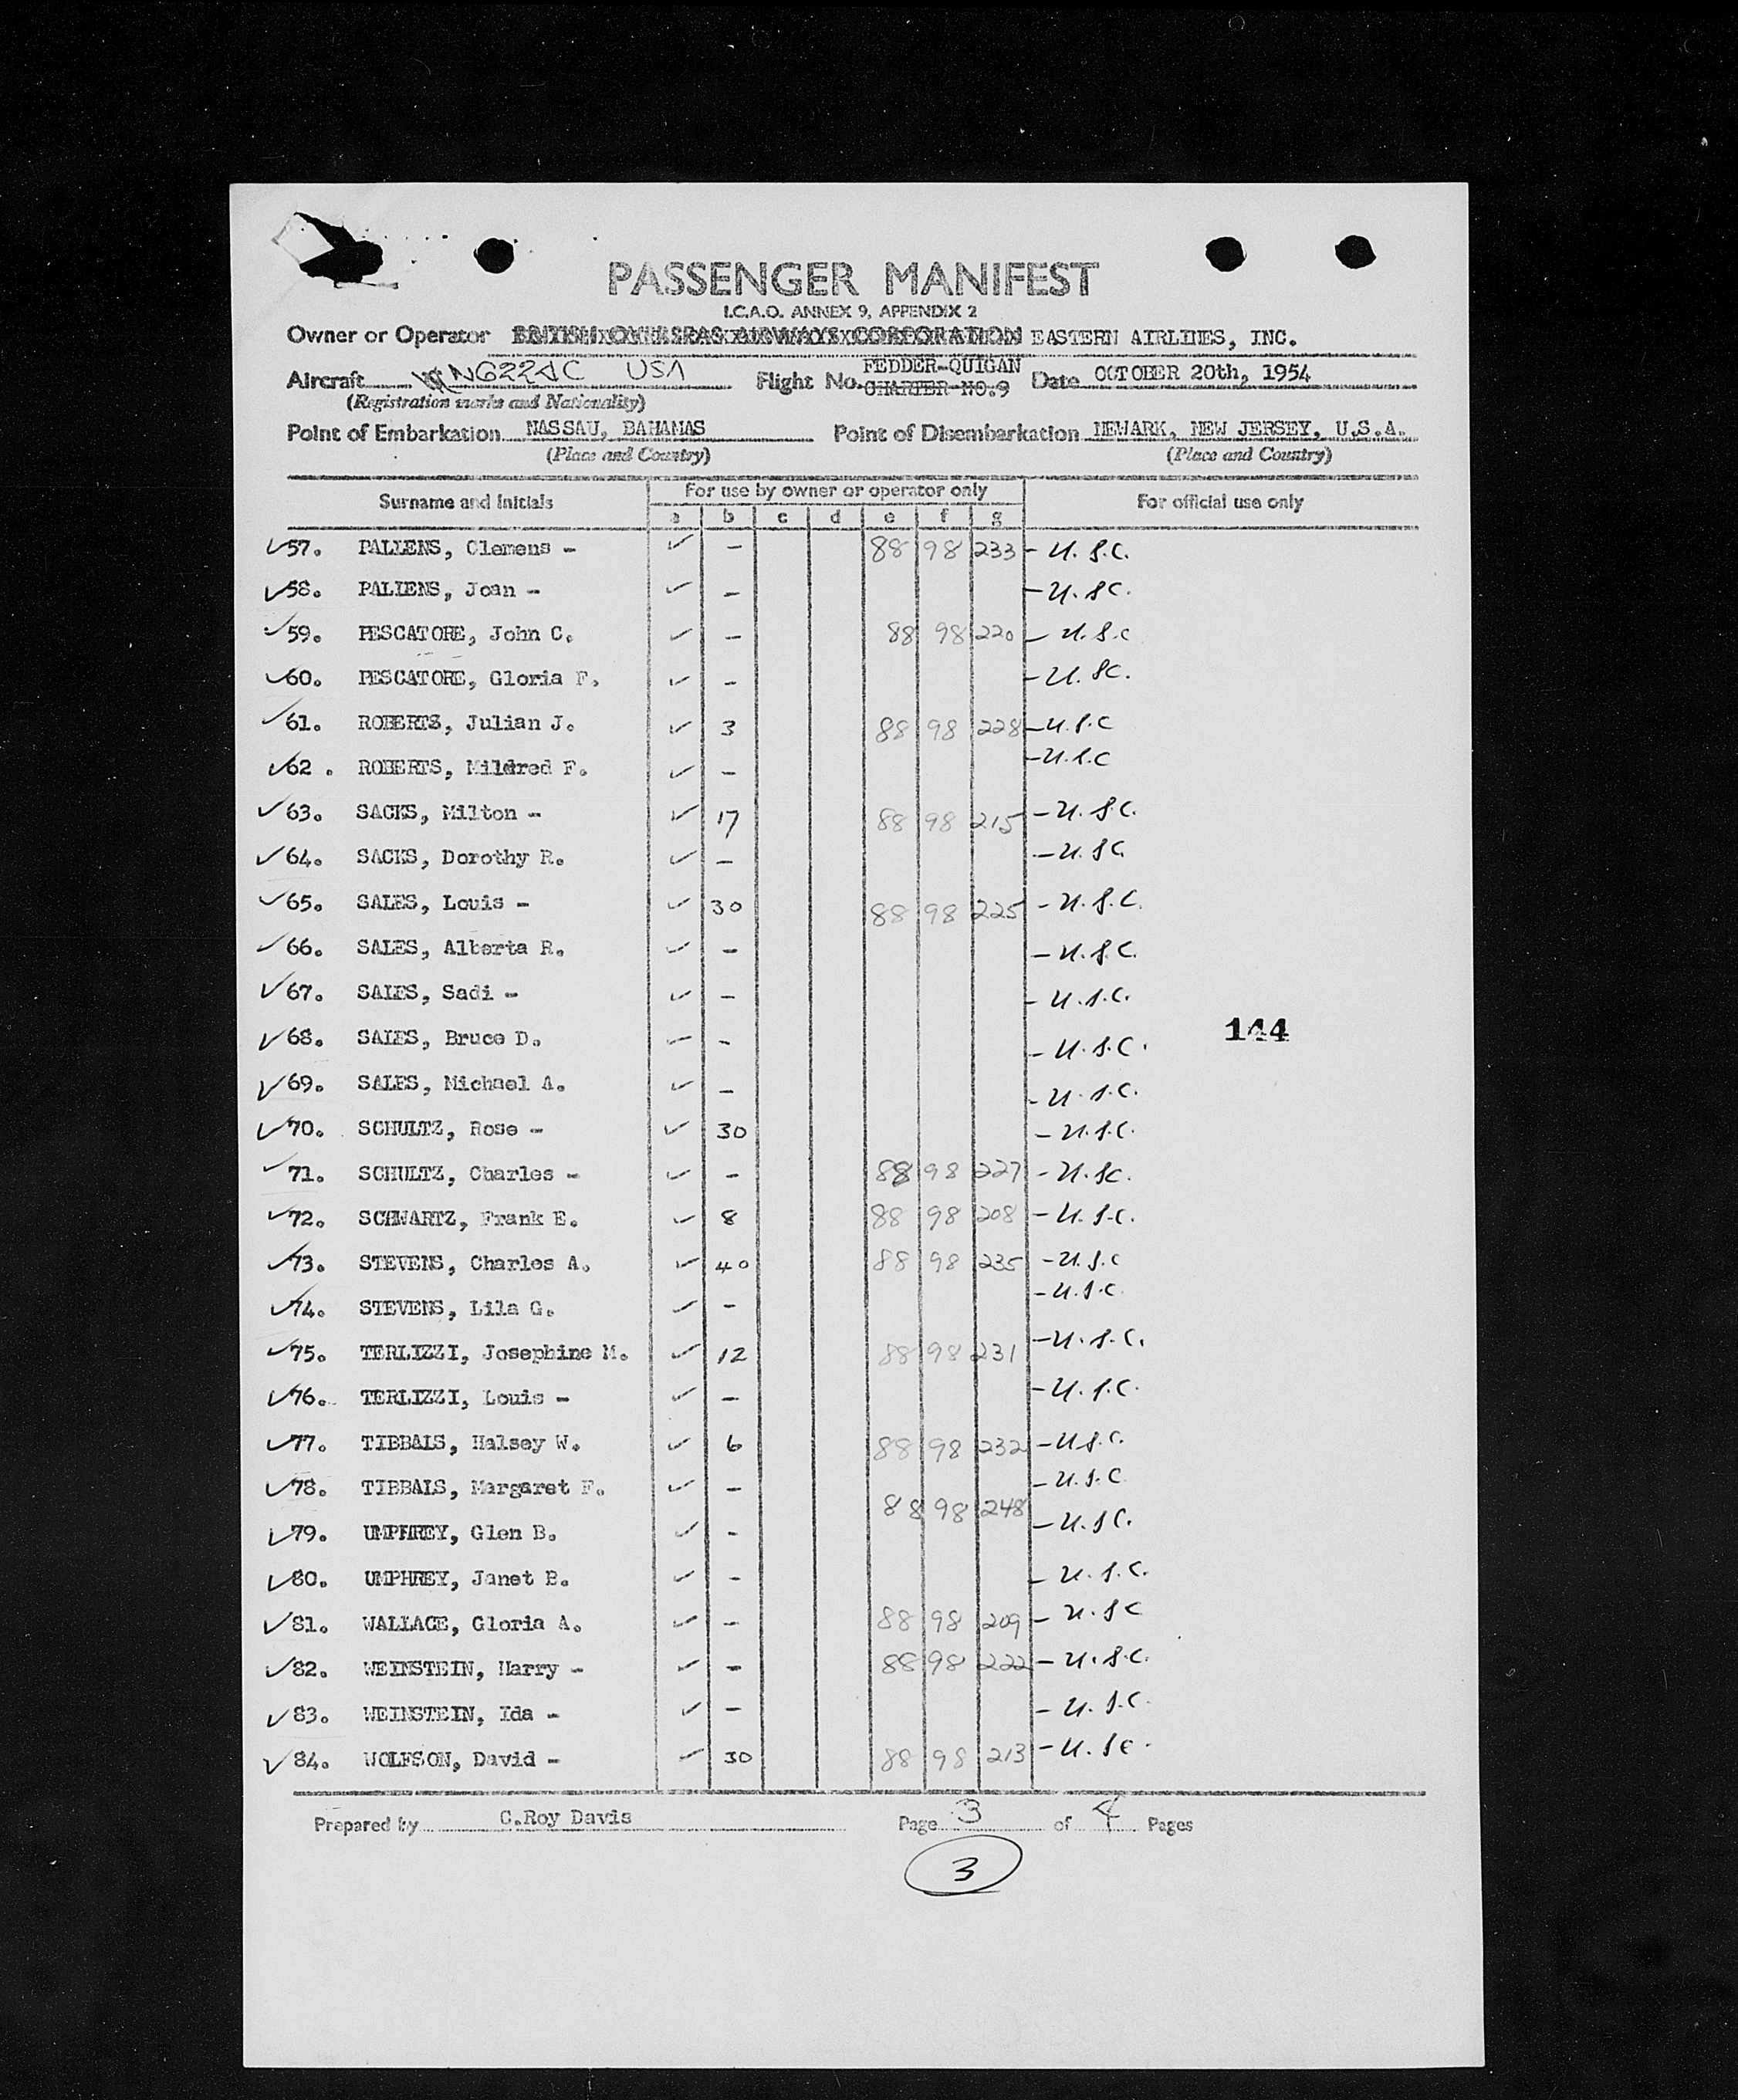 PASSENGER MANIFEST
I.C.A.O. ANNEX 9, APPENDIX 2
Owner or Operator BRITISH OVERSEAS AIRWAYS CORPORATION EASTERN AIRLINES, INC.
FEDDER-QUIGAN
Aircraft USA Flight No. CHARTER NO.9 Date OCTOBER 20th, 1954
(Registration marks and Nationality)
Point of Embarkation NASSAU, BAHAMAS Point of Disembarkation NEWARK, NEW JERSEY, U.S.A.
(Place and Country) (Place and Country)
Surname and Initials For use by owner or operator only For official use only
a b c d e f g
✓57. PALIENS, Clemens - ✓ - 88 98 233 - U.S.C.
✓58. PALIENS, Joan - ✓ - - U.S.C.
✓59. PESCATORE, John C. ✓ - 88 98 220 - U.S.C
✓60. PESCATORE, Gloria F. ✓ - - U.S.C.
✓61. ROBERTS, Julian J. ✓ 3 88 98 228 - U.S.C
✓62. ROBERTS, Mildred F. ✓ - - U.S.C
✓63. SACKS, Milton - ✓ 17 88 98 215 - U.S.C.
✓64. SACKS, Dorothy R. ✓ - - U.S.C.
✓65. SALES, Louis - ✓ 30 88 98 225 - U.S.C.
✓66. SALES, Alberta R. ✓ - - U.S.C.
✓67. SALES, Sadi - ✓ - - U.S.C.
144
✓68. SALES, Bruce D. ✓ - - U.S.C.
✓69. SALES, Michael A. ✓ - - U.S.C.
✓70. SCHULTZ, Rose - ✓ 30 - U.S.C.
✓71. SCHULTZ, Charles - ✓ - 88 98 227 - U.S.C.
✓72. SCHWARTZ, Frank E. ✓ 8 88 98 208 - U.S.C.
✓73. STEVENS, Charles A. ✓ 40 88 98 235 - U.S.C
✓74. STEVENS, Lila G. ✓ - - U.S.C.
✓75. TERLIZZI, Josephine M. ✓ 12 88 98 231 - U.S.C.
✓76. TERLIZZI, Louis - ✓ - - U.S.C.
✓77. TIBBALS, Halsey W. ✓ 6 88 98 232 - U.S.C.
✓78. TIBBALS, Margaret F. ✓ - - U.S.C
✓79. UMPHREY, Glen B. ✓ - 88 98 248 - U.S.C.
✓80. UMPHREY, Janet B. ✓ - - U.S.C.
✓81. WALLACE, Gloria A. ✓ - 88 98 209 - U.S.C
✓82. WEINSTEIN, Harry - ✓ - 88 98 222 - U.S.C.
✓83. WEINSTEIN, Ida - ✓ - - U.S.C.
✓84. WOLFSON, David - ✓ 30 88 98 213 - U.S.C.
Prepared by C.Roy Davis Page 3 of 4 Pages
3